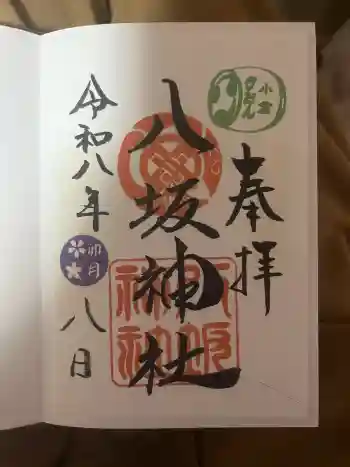 奉拝
小倉
八坂神社
八坂神社
令和八年
卯月
八日